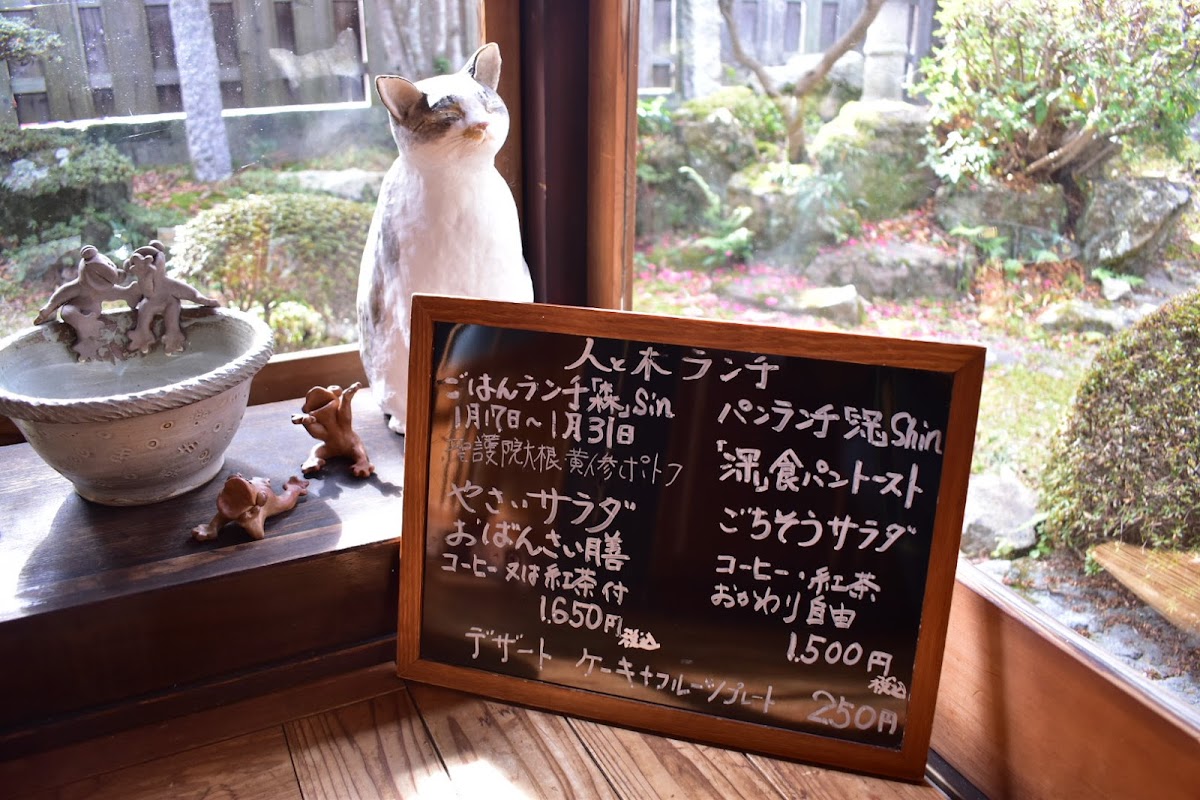 人と木 ランチ
ごはんランチ「森」Sin
1月17日〜1月31日
聖護院大根 黄人参ポトフ
やさいサラダ
おばんさい膳
コーヒー又は紅茶付
1.650円税込
パンランチ「深」Shin
「深」食パントースト
ごちそうサラダ
コーヒー・紅茶
おかわり自由
1.500円
税込
デザート ケーキ+フルーツプレート 250円